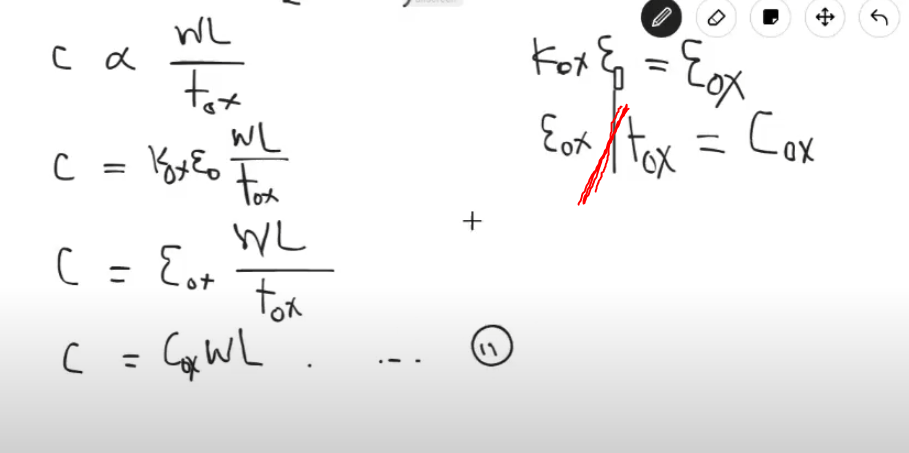 C ∝ WL / tox
C = Kox ε0 WL / tox
C = εox WL / tox
C = Cox WL . ... (11)
Kox ε0 = εox
εox / tox = Cox